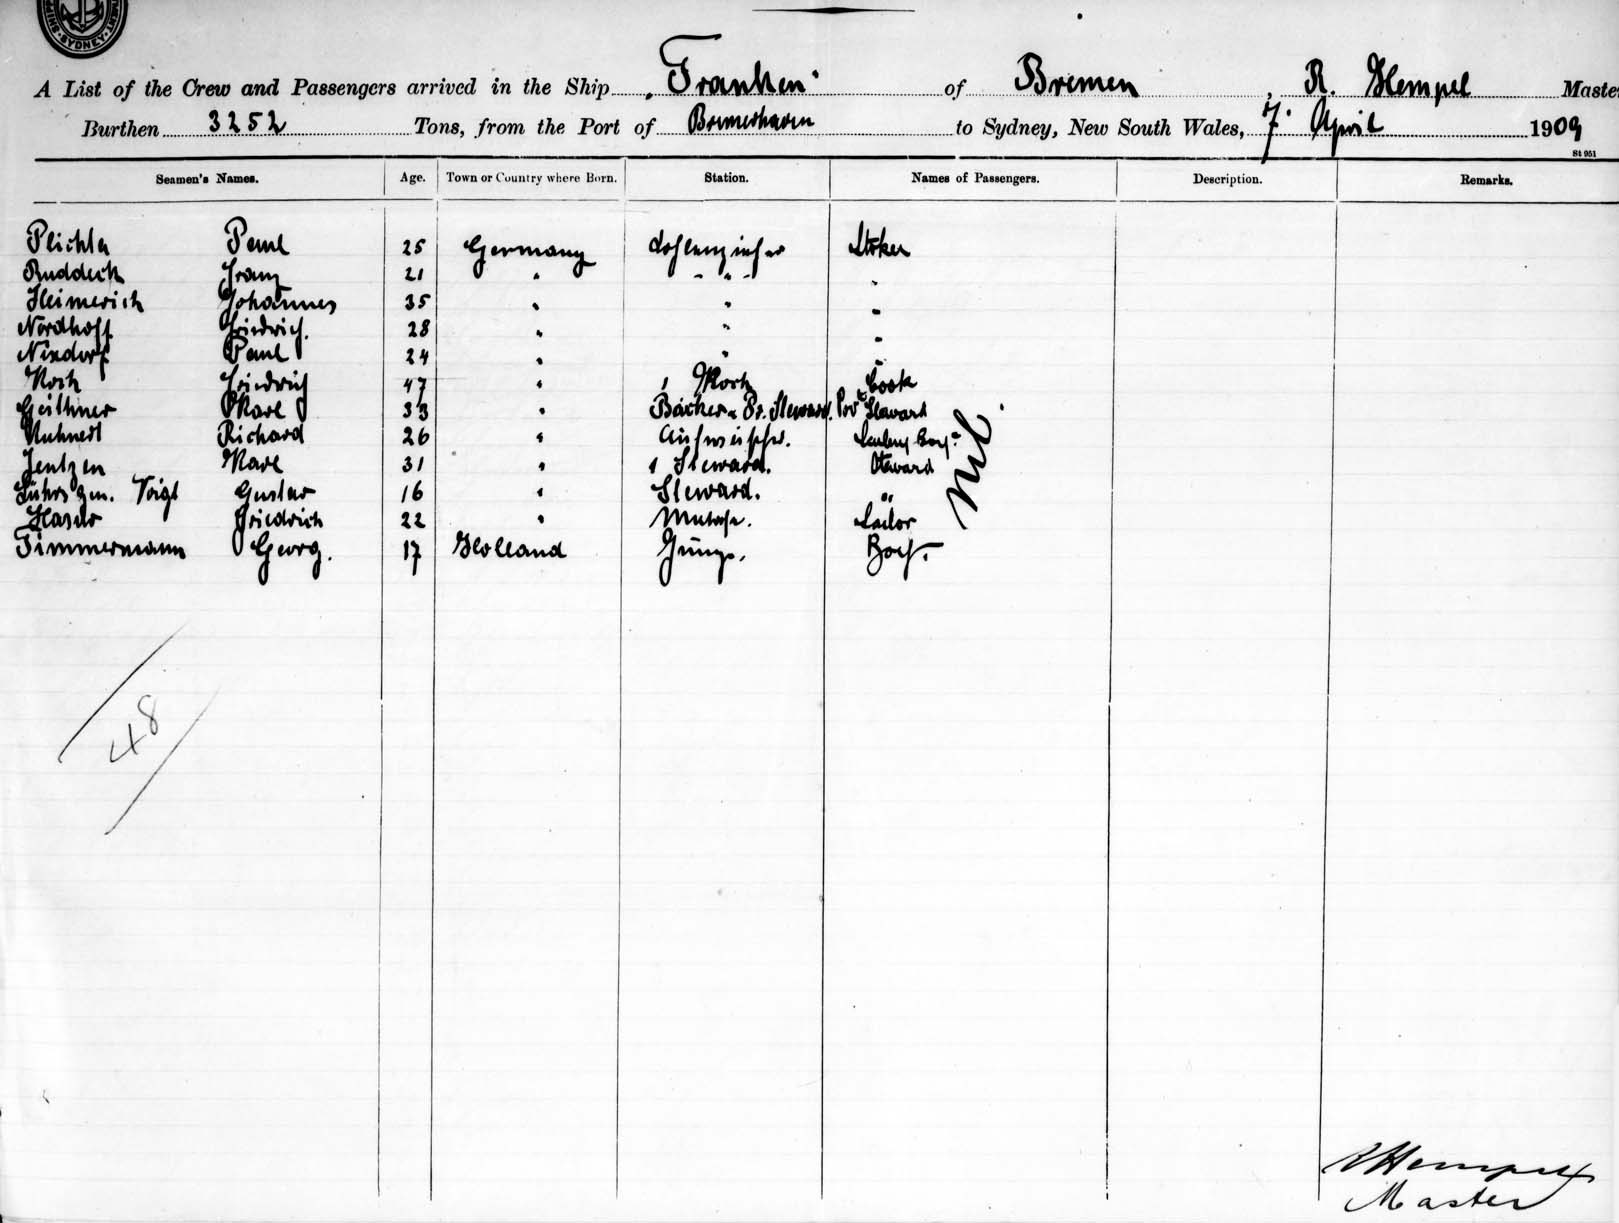 SYDNEY
A List of the Crew and Passengers arrived in the Ship "Franken" of Bremen, R. Hempel Master
Burthen 3252 Tons, from the Port of Bremerhaven to Sydney, New South Wales, 7. April 1909
St 951
Seamen's Names. Age. Town or Country where Born. Station. Names of Passengers. Description. Remarks.
Plichta Paul 25 Germany Kohlenzieher Stoker
Ruddeck Franz 21 " " "
Heimerich Johannes 35 " " "
Nordhoff Friedrich. 28 " " "
Nixdorf Paul 24 " " "
Koch Friedrich 47 " 1 Koch Cook
Geithner Karl 33 " Bäcker u Pr. Steward. Prov & Steward
Richard 26 " Aufwäscher. Boy
Jentzen Karl 31 " 1 Steward. Steward
Lührs gen. Voigt Gustav 16 " Steward. "
Friedrich 22 " Matrose. Sailor
Timmermann Georg. 17 Holland Junge. Boy.
Nil.
48
R Hempel
Master